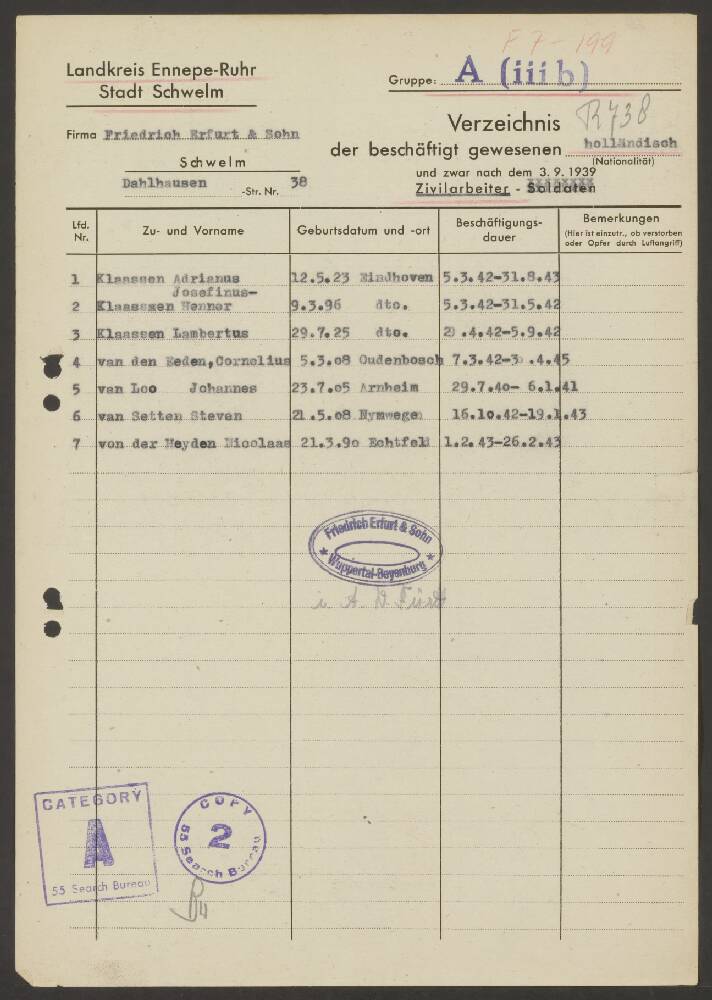 F 7 - 199
Landkreis Ennepe-Ruhr
Stadt Schwelm
Gruppe: A (iii b)
R738
Firma Friedrich Erfurt & Sohn
Schwelm
Dahlhausen -Str. Nr. 38
Verzeichnis
der beschäftigt gewesenen holländisch
(Nationalität)
und zwar nach dem 3. 9. 1939
Zivilarbeiter - Soldaten
Lfd. Nr. Zu- und Vorname Geburtsdatum und -ort Beschäftigungs-dauer Bemerkungen
(Hier ist einzutr., ob verstorben oder Opfer durch Luftangriff)
1 Klaassen Adrianus 12.5.23 Eindhoven 5.3.42-31.8.43
Josefinus-
2 Klaassen 9.3.96 dto. 5.3.42-31.5.42
3 Klaassen Lambertus 29.7.25 dto. .4.42-5.9.42
4 van den Eeden, Cornelius 5.3.08 Oudenbosch 7.3.42-3 .4.45
5 van Loo Johannes 23.7.05 Arnheim 29.7.40- 6.1.41
6 van Setten Steven 21.5.08 Nymwegen 16.10.42-19.1.43
7 von der Heyden Nicolaas 21.3.90 Echtfeld 1.2.43-26.2.43
Friedrich Erfurt & Sohn
Wuppertal-Beyenburg
i. A. D.
CATEGORY
A
55 Search Bureau
COPY
2
55 Search Bureau